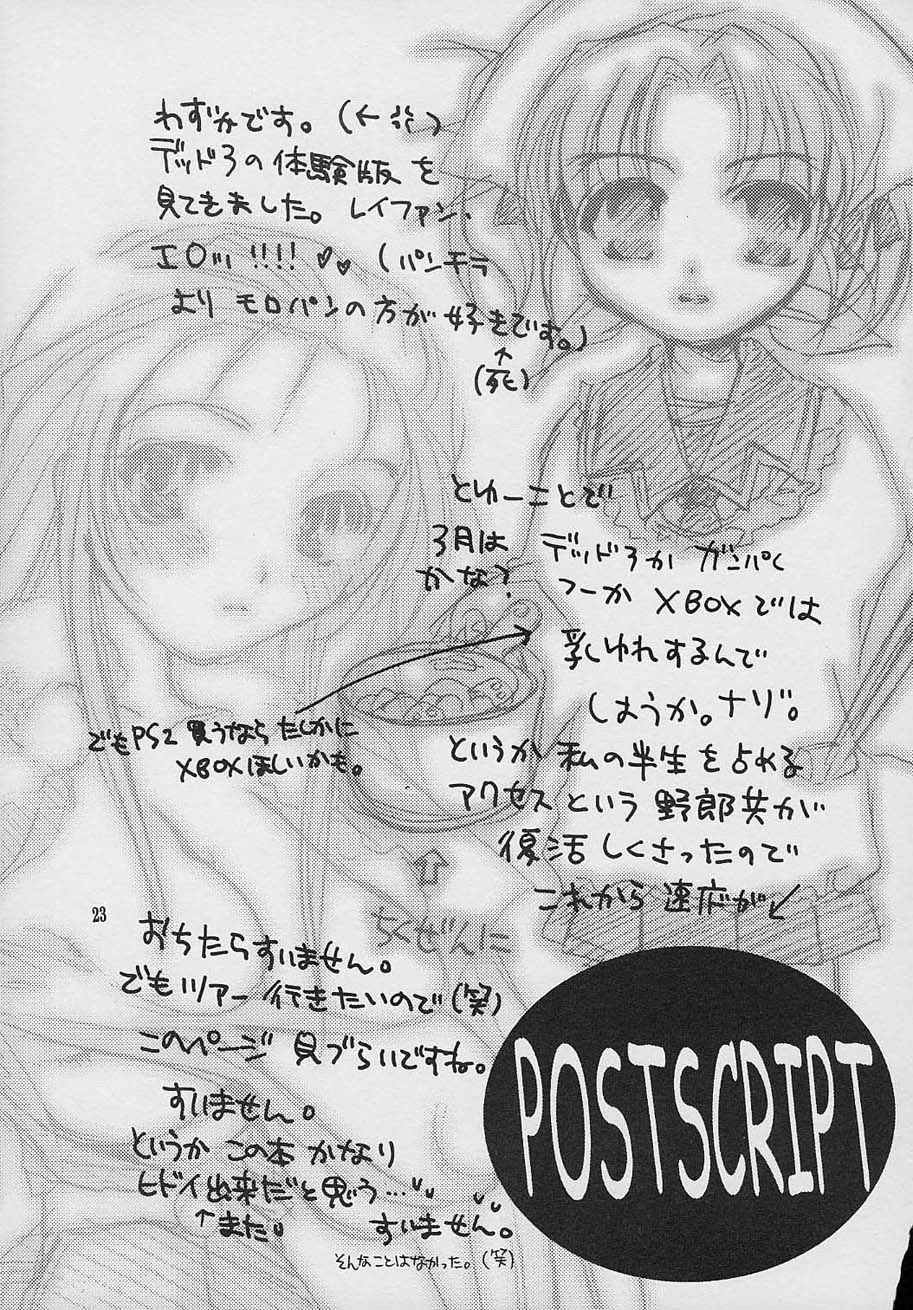 わずかです。(←
デッド3の体験版を
見てきました。レイファン、
エロッ!!!!♡♡(パンチラ
よりモロパンの方が好きです。)
↑
(死)
とゆーことで
3月は デッド3か ガンパく
かな? つーか XBOXでは
乳ゆれするんで
しょうか。ナゾ。
でもPS2買うならたしかに
XBOXほしいかも。
というか 私の半生を占める
アクセスという 野郎共が
復活しくさったので
これから 速応が↙
⇧
ちくぜんに
23
おちたらすいません。
でもツアー行きたいので(笑)
このページ 見づらいですね。
すいません。
というか この本 かなり
ヒドイ出来だと思う…
↑また すいません。
そんなことはなかった。(笑)
POSTSCRIPT